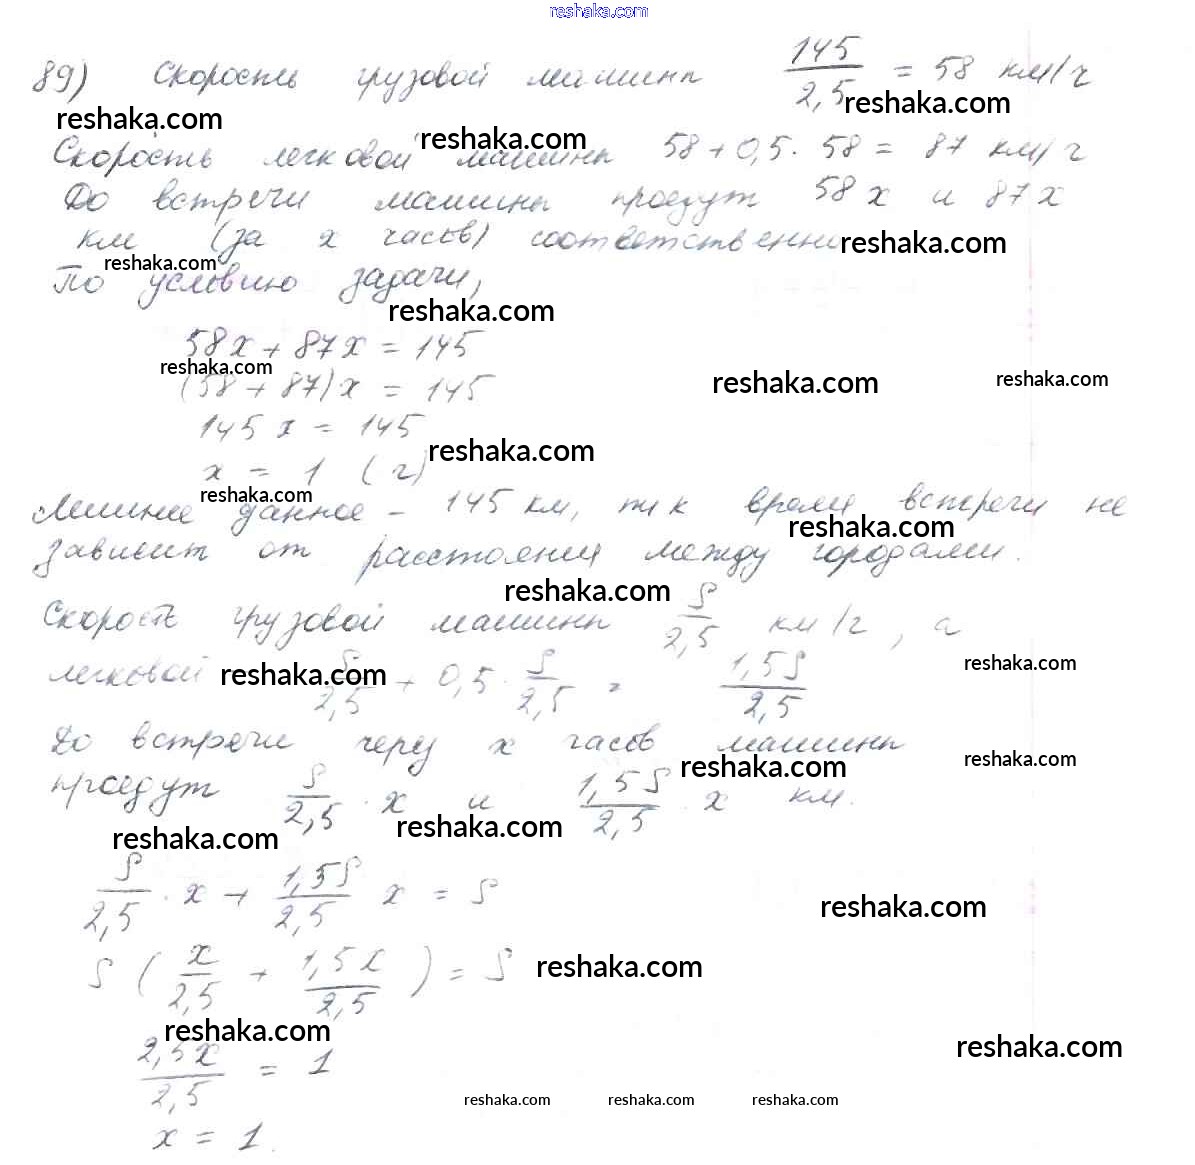 reshaka.com
89) Скорость грузовой машины 145/2,5 = 58 км/ч
reshaka.com
reshaka.com
reshaka.com
Скорость легковой машины 58 + 0,5 · 58 = 87 км/ч
До встречи машины проедут 58x и 87x
км (за x часов) соответственно
reshaka.com
reshaka.com
По условию задачи,
reshaka.com
58x + 87x = 145
reshaka.com
(58 + 87)x = 145
reshaka.com
reshaka.com
145x = 145
reshaka.com
x = 1 (ч)
reshaka.com
Лишнее данное – 145 км, т к время встречи не
reshaka.com
зависит от расстояния между городами.
reshaka.com
Скорость грузовой машины S/2,5 км/ч, а
легковой S/2,5 + 0,5 · S/2,5 = 1,5S/2,5
reshaka.com
reshaka.com
До встречи через x часов машины
reshaka.com
reshaka.com
проедут S/2,5 · x и 1,5S/2,5 · x км.
reshaka.com
reshaka.com
S/2,5 · x + 1,5S/2,5 x = S
reshaka.com
S (x/2,5 + 1,5x/2,5) = S
reshaka.com
reshaka.com
2,5x/2,5 = 1
reshaka.com
reshaka.com
reshaka.com
reshaka.com
x = 1.